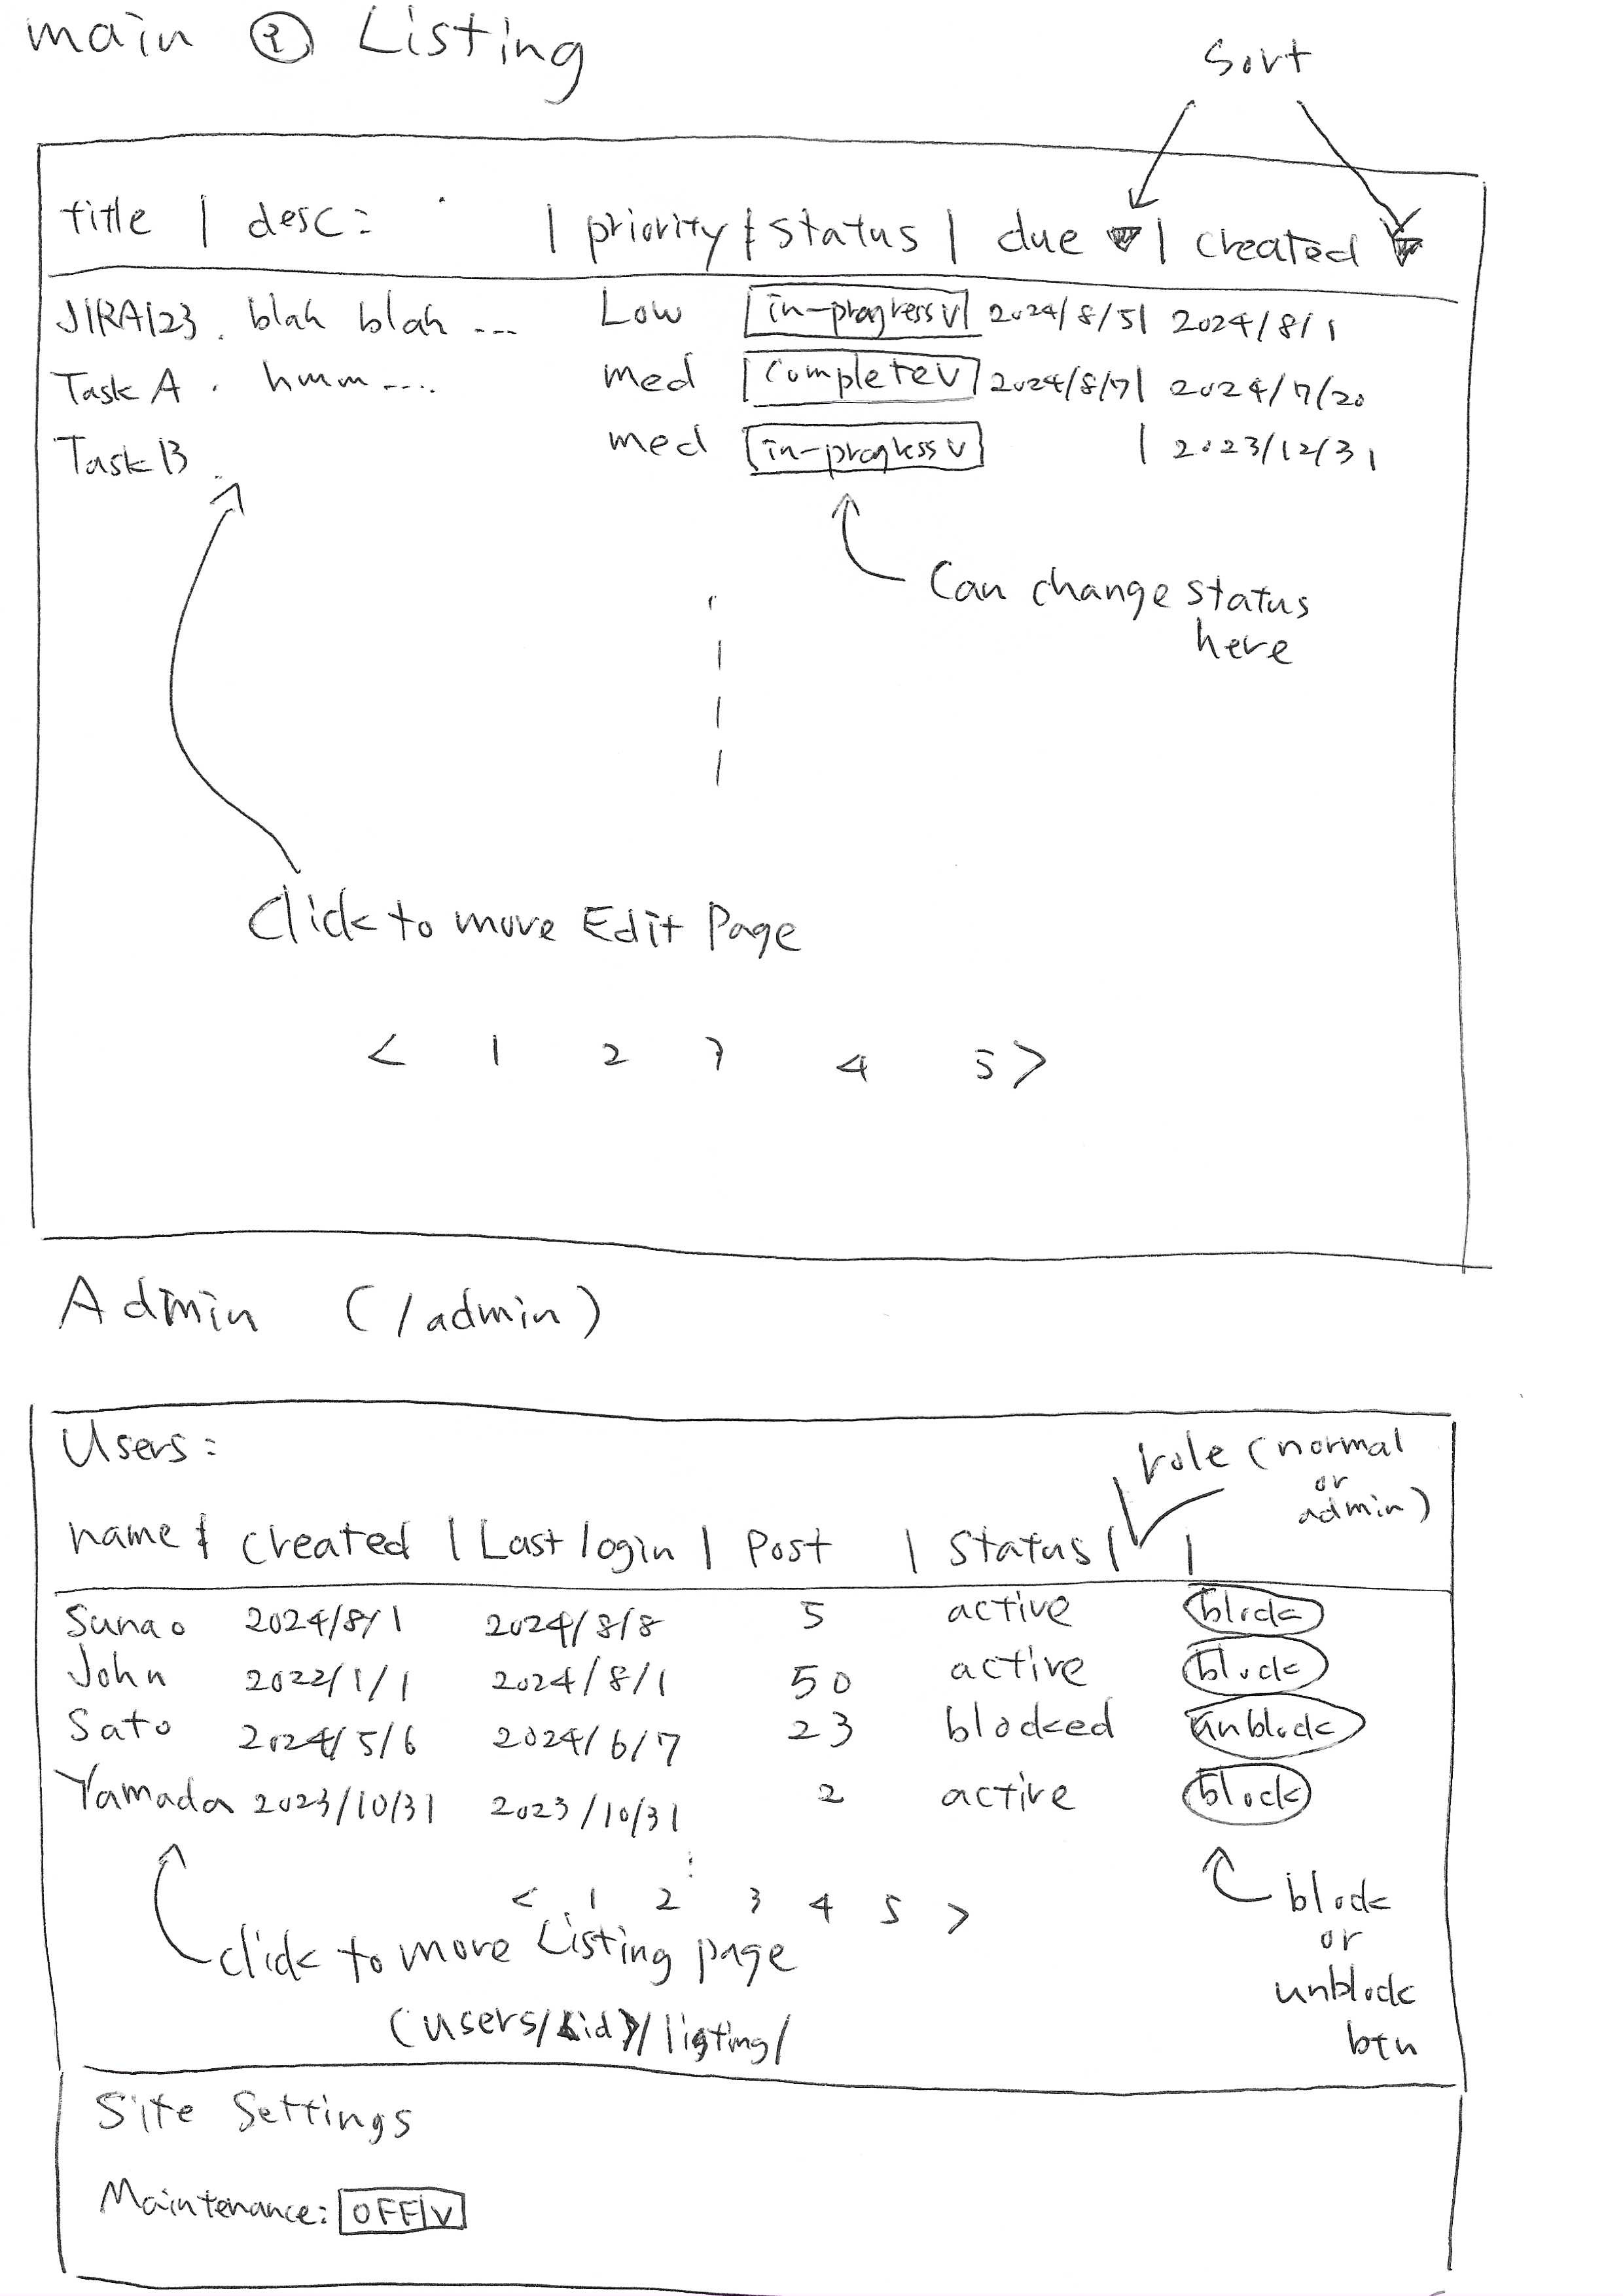 main ② Listing
Sort
title | desc: | priority | status | due ▼ | created ▼
JIRA123. blah blah ... Low in-progress v 2024/8/5 | 2024/8/1
Task A . hmm .... med complete v 2024/8/7 | 2024/7/20
Task B . med in-progress v | 2023/12/31
Can change status
here
Click to move Edit Page
< 1 2 3 4 5 >
Admin (/admin)
Users:
role (normal
or
admin)
name | created | Last login | Post | Status | |
Sunao 2024/8/1 2024/8/8 5 active block
John 2022/1/1 2024/8/1 50 active block
Sato 2024/5/6 2024/6/7 23 blocked unblock
Yamada 2023/10/31 2023/10/31 2 active block
< 1 2 3 4 5 >
click to move Listing page
(users/<id>/listing/
block
or
unblock
btn
Site Settings
Maintenance: OFF v